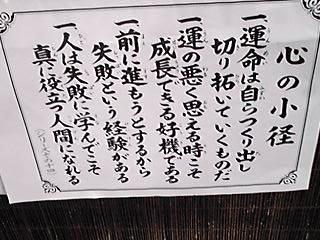 心の小径
一運命は自らつくり出し
切り拓いていくものだ
一運の悪く思える時こそ
成長できる好機である
一前に進もうとするから
失敗という経験がある
一人は失敗に学んでこそ
真に役立つ人間になれる